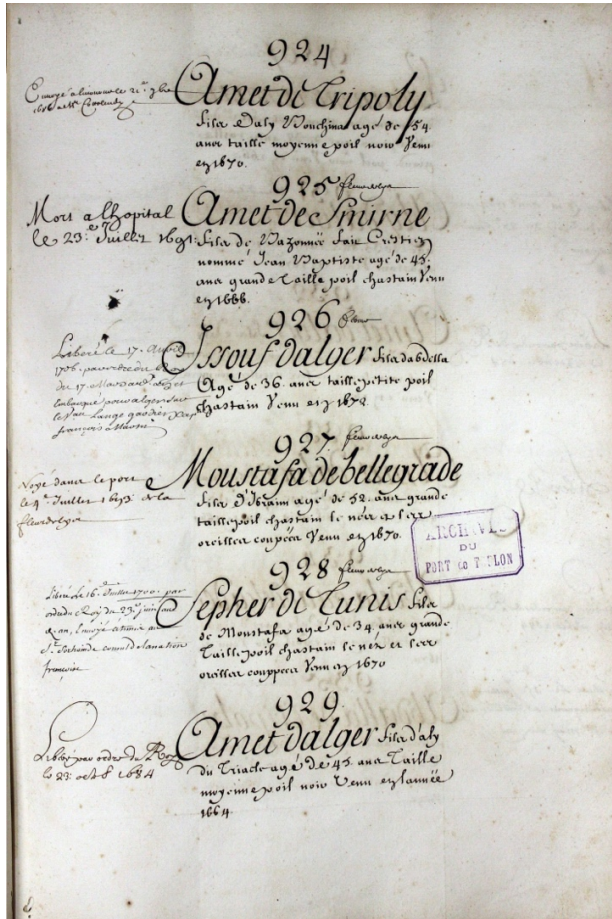 924
Amet de Tripoly
fils d'aly agé de 54.
ans taille moyenne poil noir Venu
en 1670.
925 fleurdelys
Mort a lhopital
le 23.e Juillet 1691.
Amet de Smirne
fils de fait Crestien
nommé Jean Baptiste agé de 45.
ans grande Taille poil chastain Venu
en 1666.
926
Libéré le 17.
1706. par ordre du
du 17. et
embarqué pour alger sur
le
françois
Issouf dalger fils dabdella
Agé de 36. ans taille petite poil
chastain Venu en 1672.
927. fleurdelys
Noyé dans le port
le 4.e Juillet 1693. de la
fleurdelys
Moustafa de bellegrade
fils d'Ibraim agé de 52. ans grande
taille poil chastain le nez et les
oreilles coupées Venu en 1670.
ARCHIVES
DU
PORT DE TOULON
928 fleurdelys
Libéré le 16.e Juillet 1700. par
ordre du Roy du 23.e juin
an, Envoyé a tunis au
S.r consul de la nation
françoise
Sepher de Tunis fils
de Moustafa agé de 34. ans grande
Taille poil chastain le nez et les
oreilles couppées Venu en 1670
929.
Libéré par ordre du Roy
le 23. oct.e 1684
Amet dalger fils d'aly
du Triacle agé de 45. ans Taille
moyenne poil noir Venu en lannée
1664.